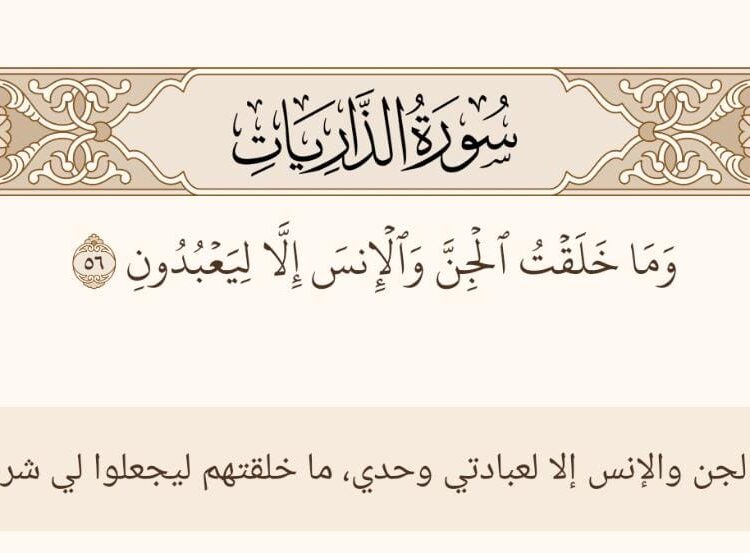 سُورَةُ الذَّارِيَاتِ
وَمَا خَلَقْتُ ٱلْجِنَّ وَٱلْإِنسَ إِلَّا لِيَعْبُدُونِ ٥٦
لجن والإنس إلا لعبادتي وحدي، ما خلقتهم ليجعلوا لي شر